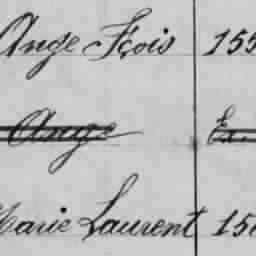 Ange Fçois 155
Ange Ex.
Marie Laurent 15